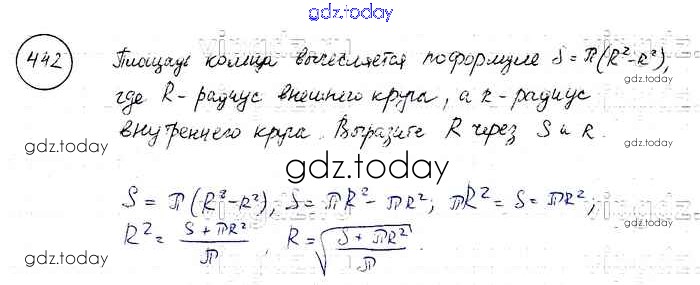 gdz.today
442 Площадь кольца вычесляется по формуле S = π(R²-R²),
где R - радиус внешнего круга, а r - радиус
внутреннего круга. Выразите R через S и R.
gdz.today
gdz.today
gdz.today
S = π(R²-R²), S = πR² - πR²; πR² = S = πR²;
R² = (S + πR²)/π, R = √((S + πR²)/π).
gdz.today
gdz.today